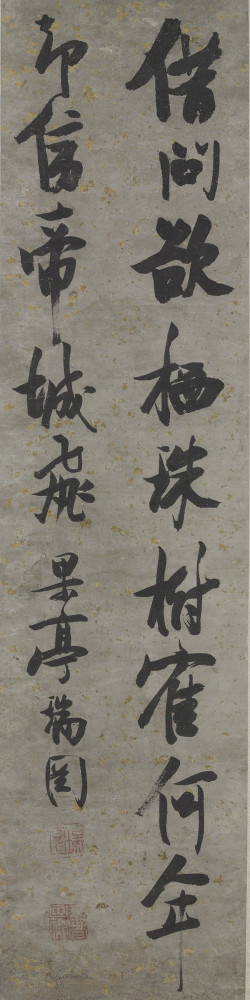 借問欲栖珠樹隺何年
却傍帝城飛 果亭瑞圖